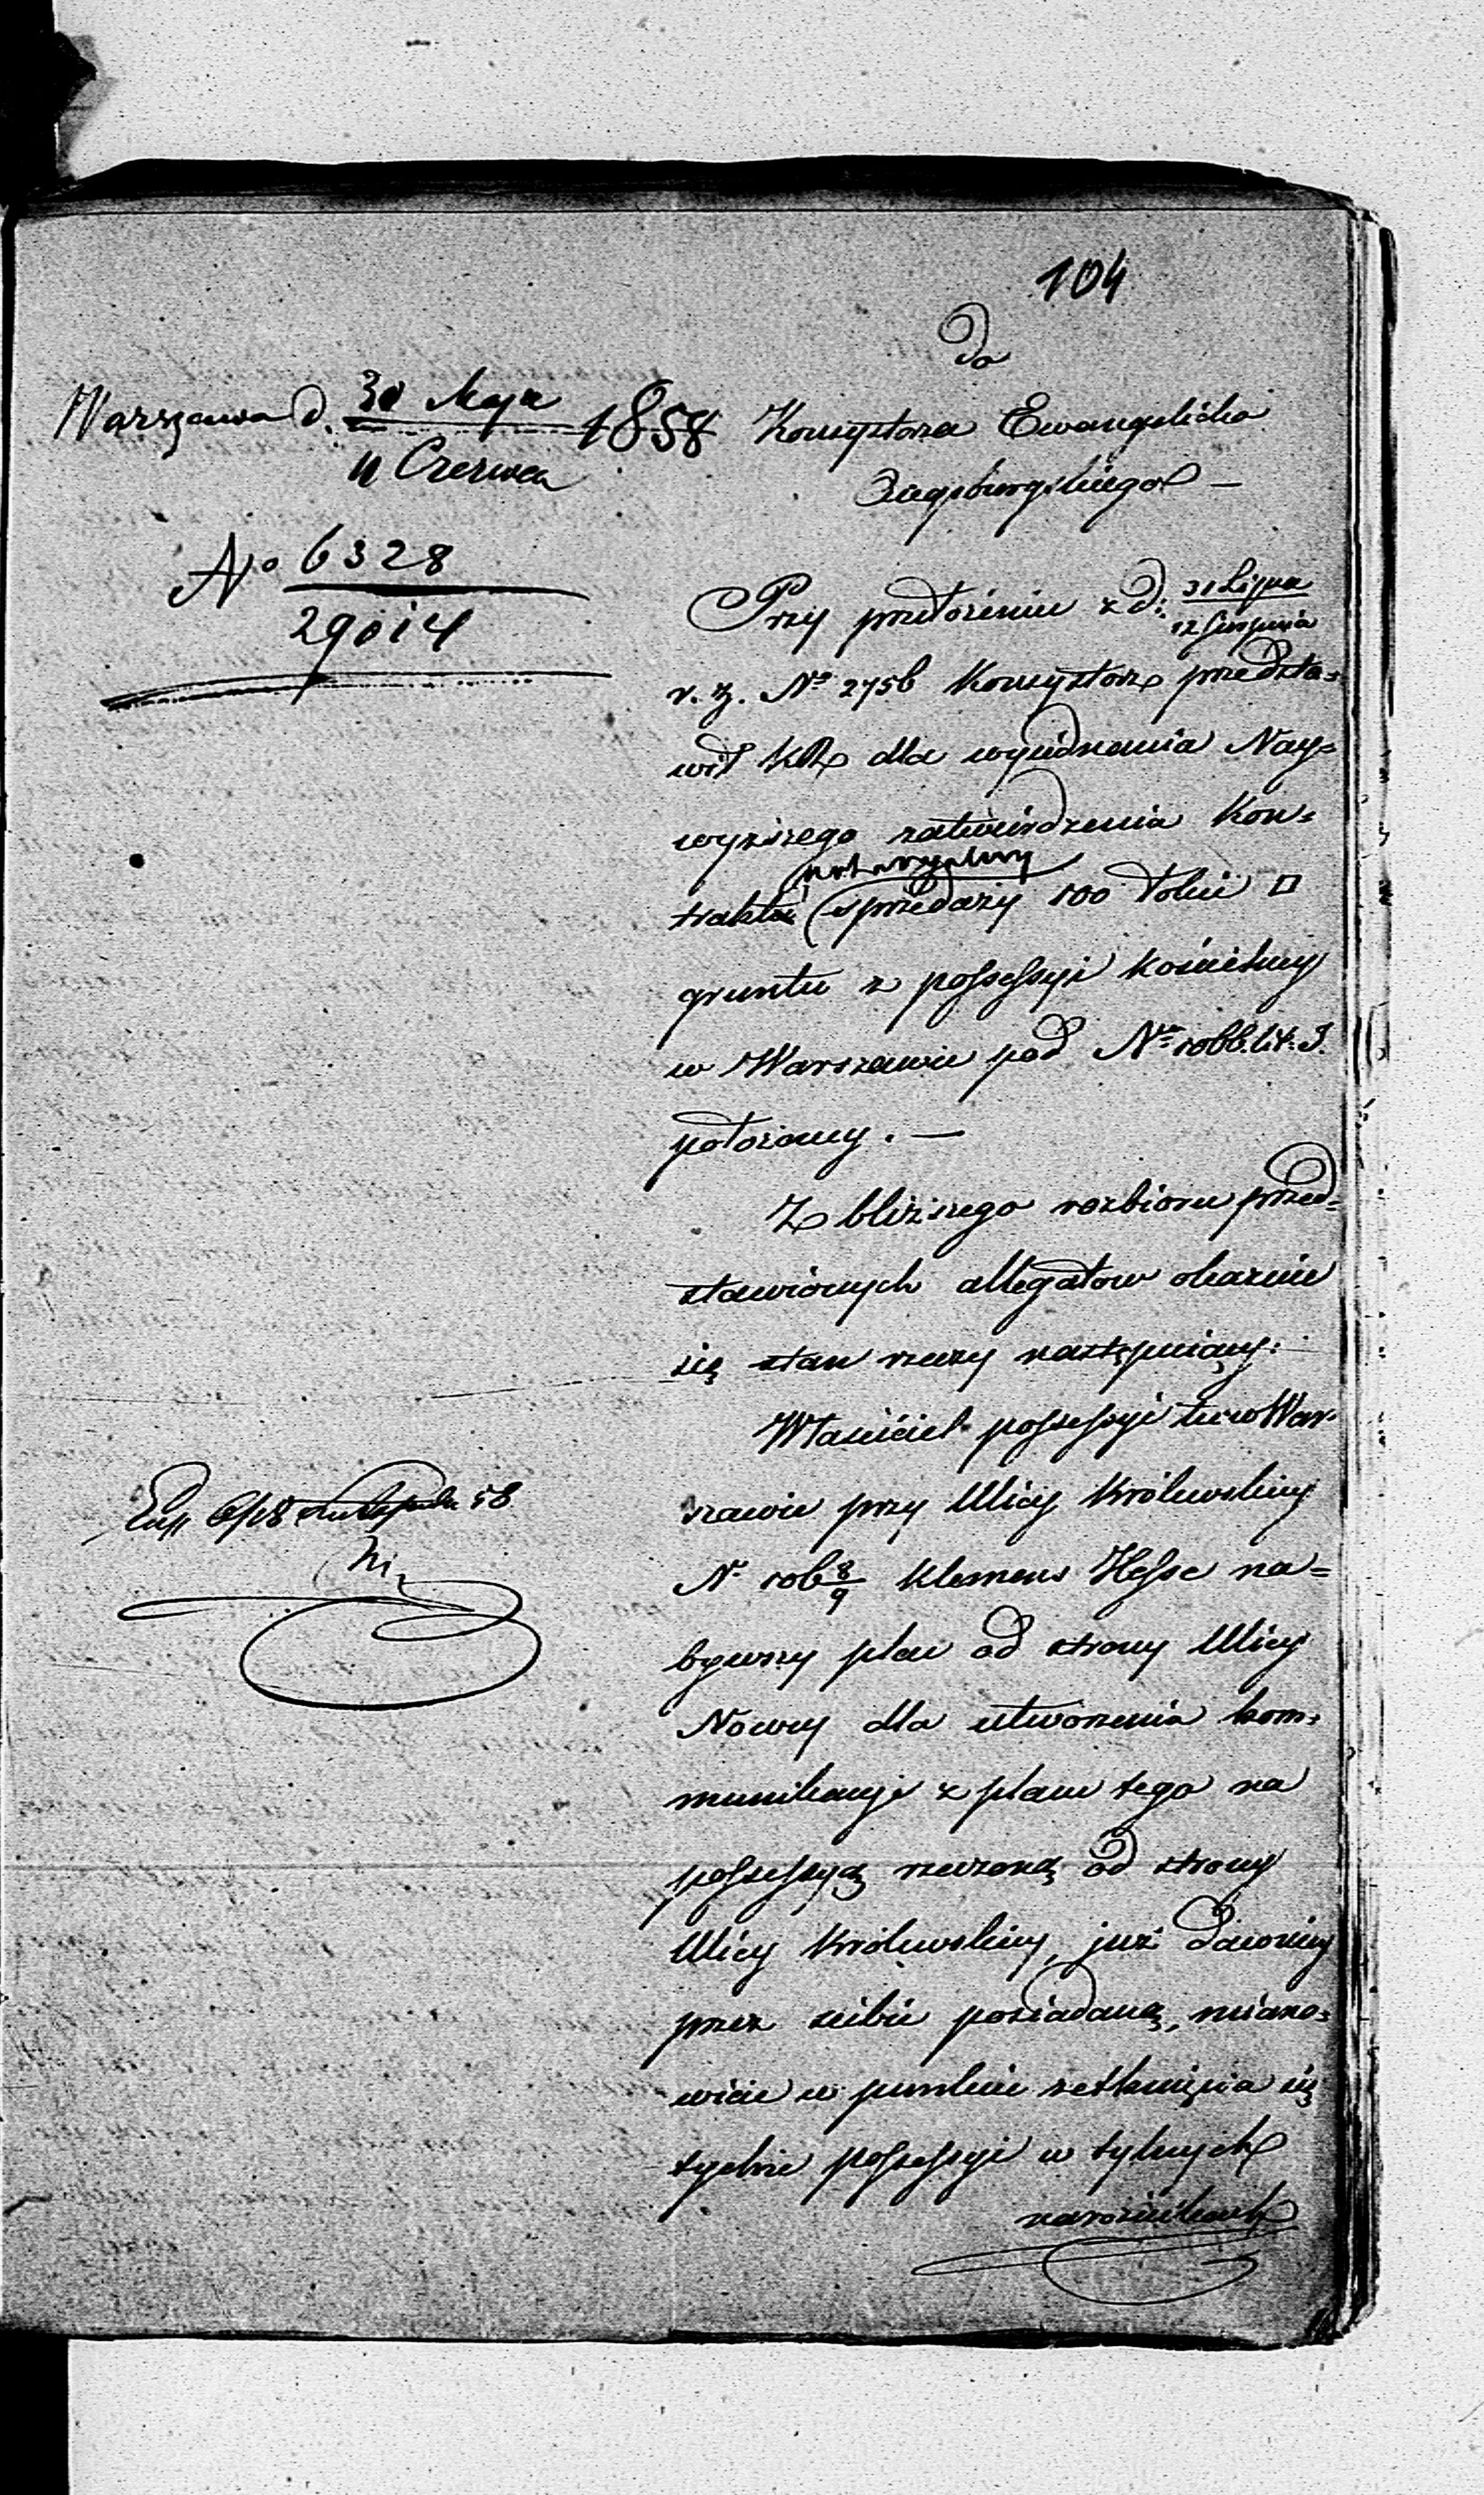 104
Do
Warszawa d. 30 Maja 1858
11 Czerwca
Konsystorza Ewangelicko
Augsburgskiego —
No 6328
29014
Przy przełożeniu z d: 31 Lipca
12 Sierpnia
r. z. No 2756 Konsystorz przedsta=
wił KR dla wyjednania Nay=
wyższego zatwierdzenia Kon=
notaryalny
traktu sprzedaży 100 łokci □
gruntu z possessyi kościelney
w Warszawie pod Nrem 1066. lit. J.
położoney. —
Z bliższego rozbioru przed=
stawionych allegatow okazuie
się stan rzeczy następuiący:
Właściciel possessyi tu w War=
szawie przy Ulicy Królewskiey
N 106 8/9 Klemens Hesse na=
bywszy plac od strony Ulicy
Nowey dla utworzenia kom=
munikacyi z placu tego na
possessyą rzeczoną od strony
Ulicy Królewskiey, już dawniey
przez siebie posiadaną, miano=
wicie w punkcie zetknięcia się
tychże possessyi w tylnych
narożnikach
58